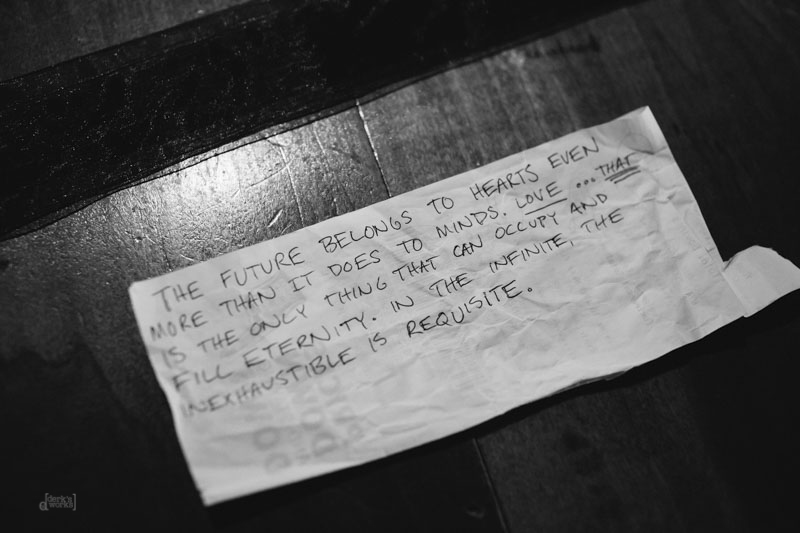 THE FUTURE BELONGS TO HEARTS EVEN
MORE THAN IT DOES TO MINDS. LOVE ...THAT
IS THE ONLY THING THAT CAN OCCUPY AND
FILL ETERNITY. IN THE INFINITE, THE
INEXHAUSTIBLE IS REQUISITE.
[derk's
d works]